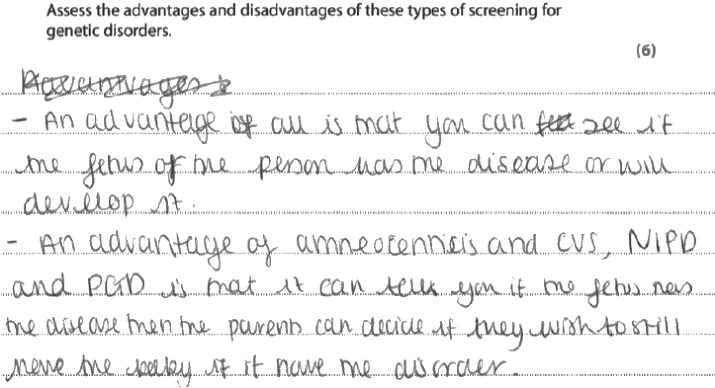 Assess the advantages and disadvantages of these types of screening for
genetic disorders.
(6)
Advantages:
- An advantage of all is that you can see if
the fetus of the person has the disease or will
devellop it.
- An advantage of amneocennicis and CVS, NIPD
and PGD is that it can tells you if the fetus has
the disease then the parents can decide if they wish to still
have the baby if it have the disorder.